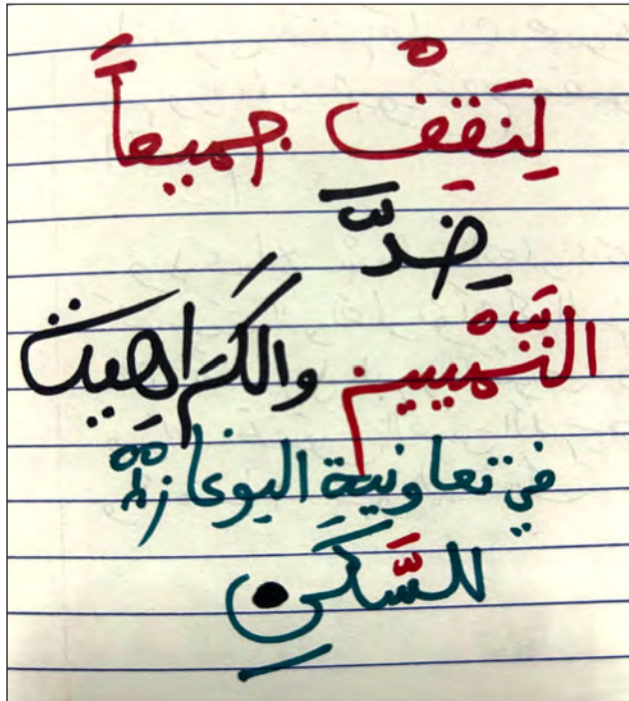 لِنَقِفْ جميعاً
ضِدَّ
التَّمْييز والكَرَاهِية
في تعاونية اليوغازْ
للسَّكَنِ